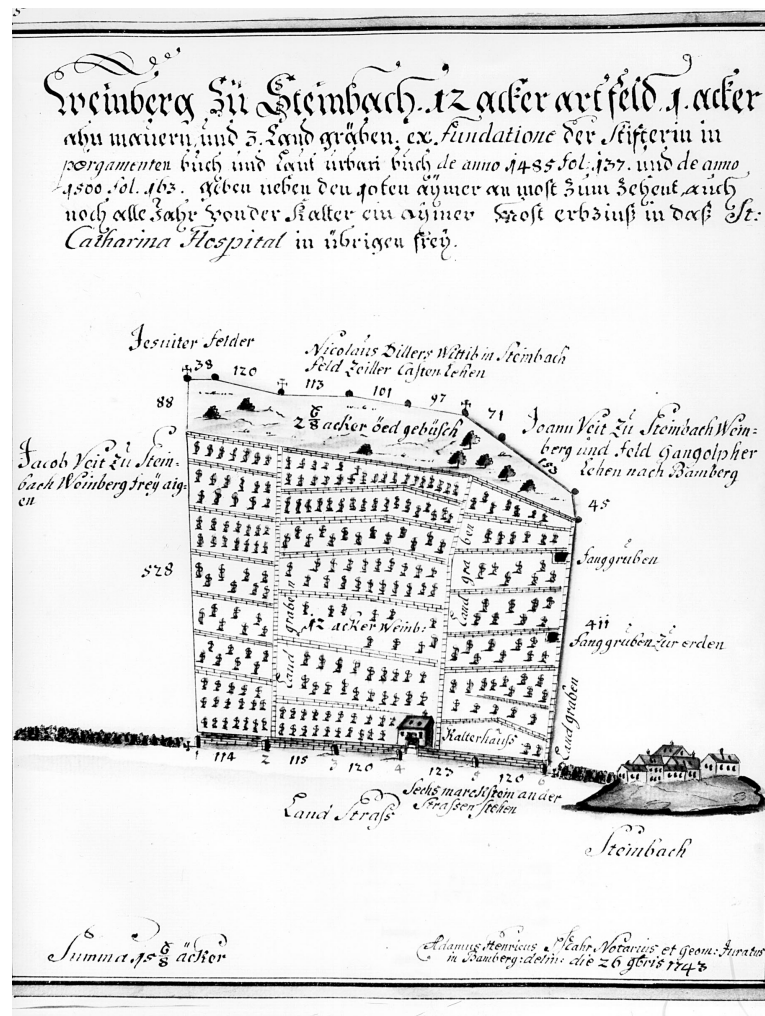 Weinberg Zu Steinbach. 12 acker artfeld, 1. acker
ahn mauern, und 3. Land gräben. ex Fundatione der Stifterin in
pergamenten buch und Laut urbari buch de anno 1485 fol: 137. und de anno
1500 fol. 163. geben neben den 10ten aÿmer an most Zum Zehent, auch
noch alle Jahr von der Kalter ein aÿmer Most erbzinß in daß St:
Catharina Hospital in übrigen freÿ.
Jesuiter Felder
Nicolaus Dillers Wittib in Steinbach
Feld Zeiller Casten Lehen
38 120 113 101 97 71
88
2 6/8 acker öed gebüsch
Joann Veit Zu Steinbach Wein-
berg und Feld Gangolpher
Lehen nach Bamberg
153
45
Jacob Veit Zu Stein-
bach Weinberg freÿ aig-
en
528
Land graben
Land graben
Fanggruben
12 acker Weinb:
411
Fanggruben Zur erden
Land graben
Kalterhauß
1 2 3 4 5 6
114 115 120 123 120
Sechs marckstein an der
Strassen stehen
Land Straß
Steinbach
Summa 15 6/8 äcker
Adamus Henricus Notarius et Geom: Juratus
in Bamberg: delin: die 26 9bris 1743